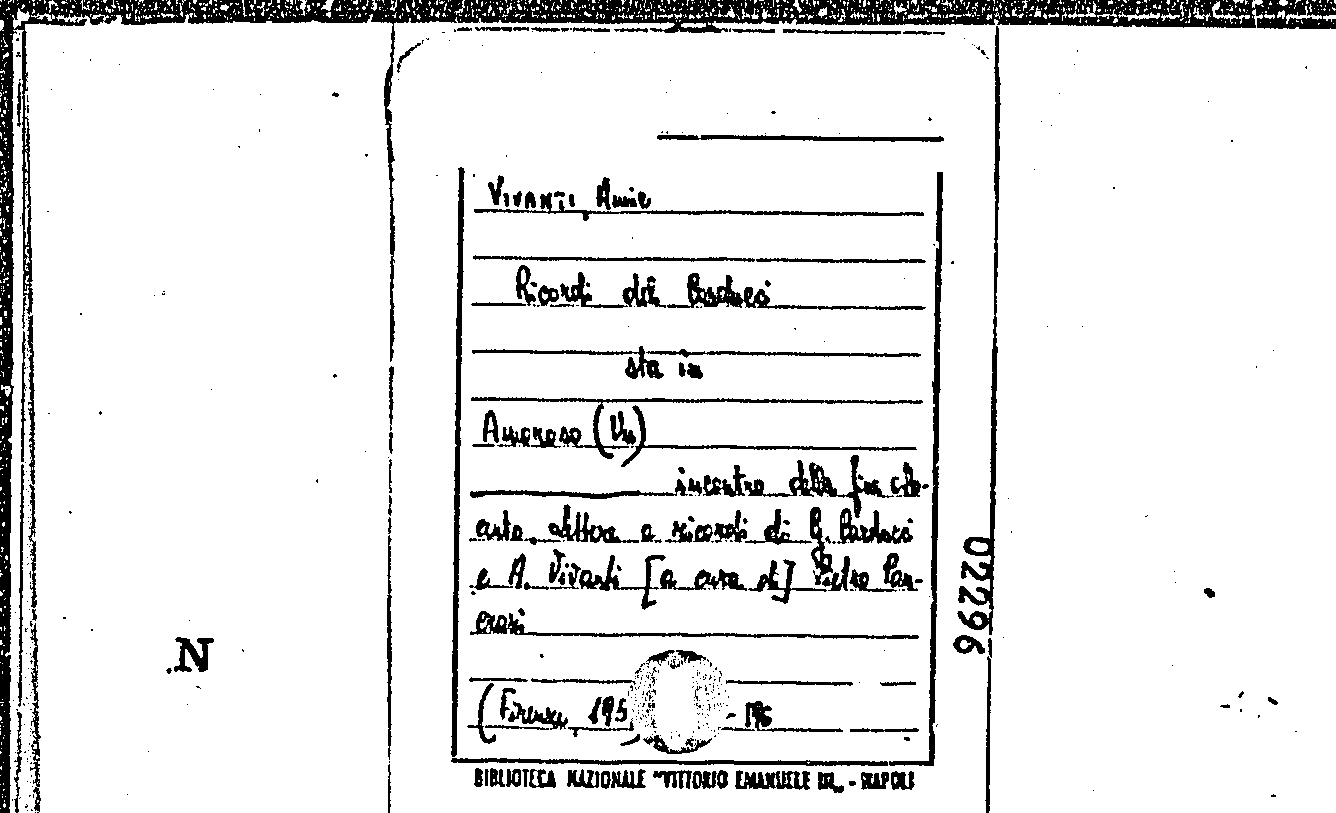 VIVANTI, Annie
Ricordi di Carducci
sta in
Amoroso (Un)
incontro della fine otto-
cento, lettere e ricordi di G. Carducci
e A. Vivanti [a cura di] Pietro Pan-
crazi
(Firenze, 195
BIBLIOTECA NAZIONALE "VITTORIO EMANUELE III" - NAPOLI
02296
N